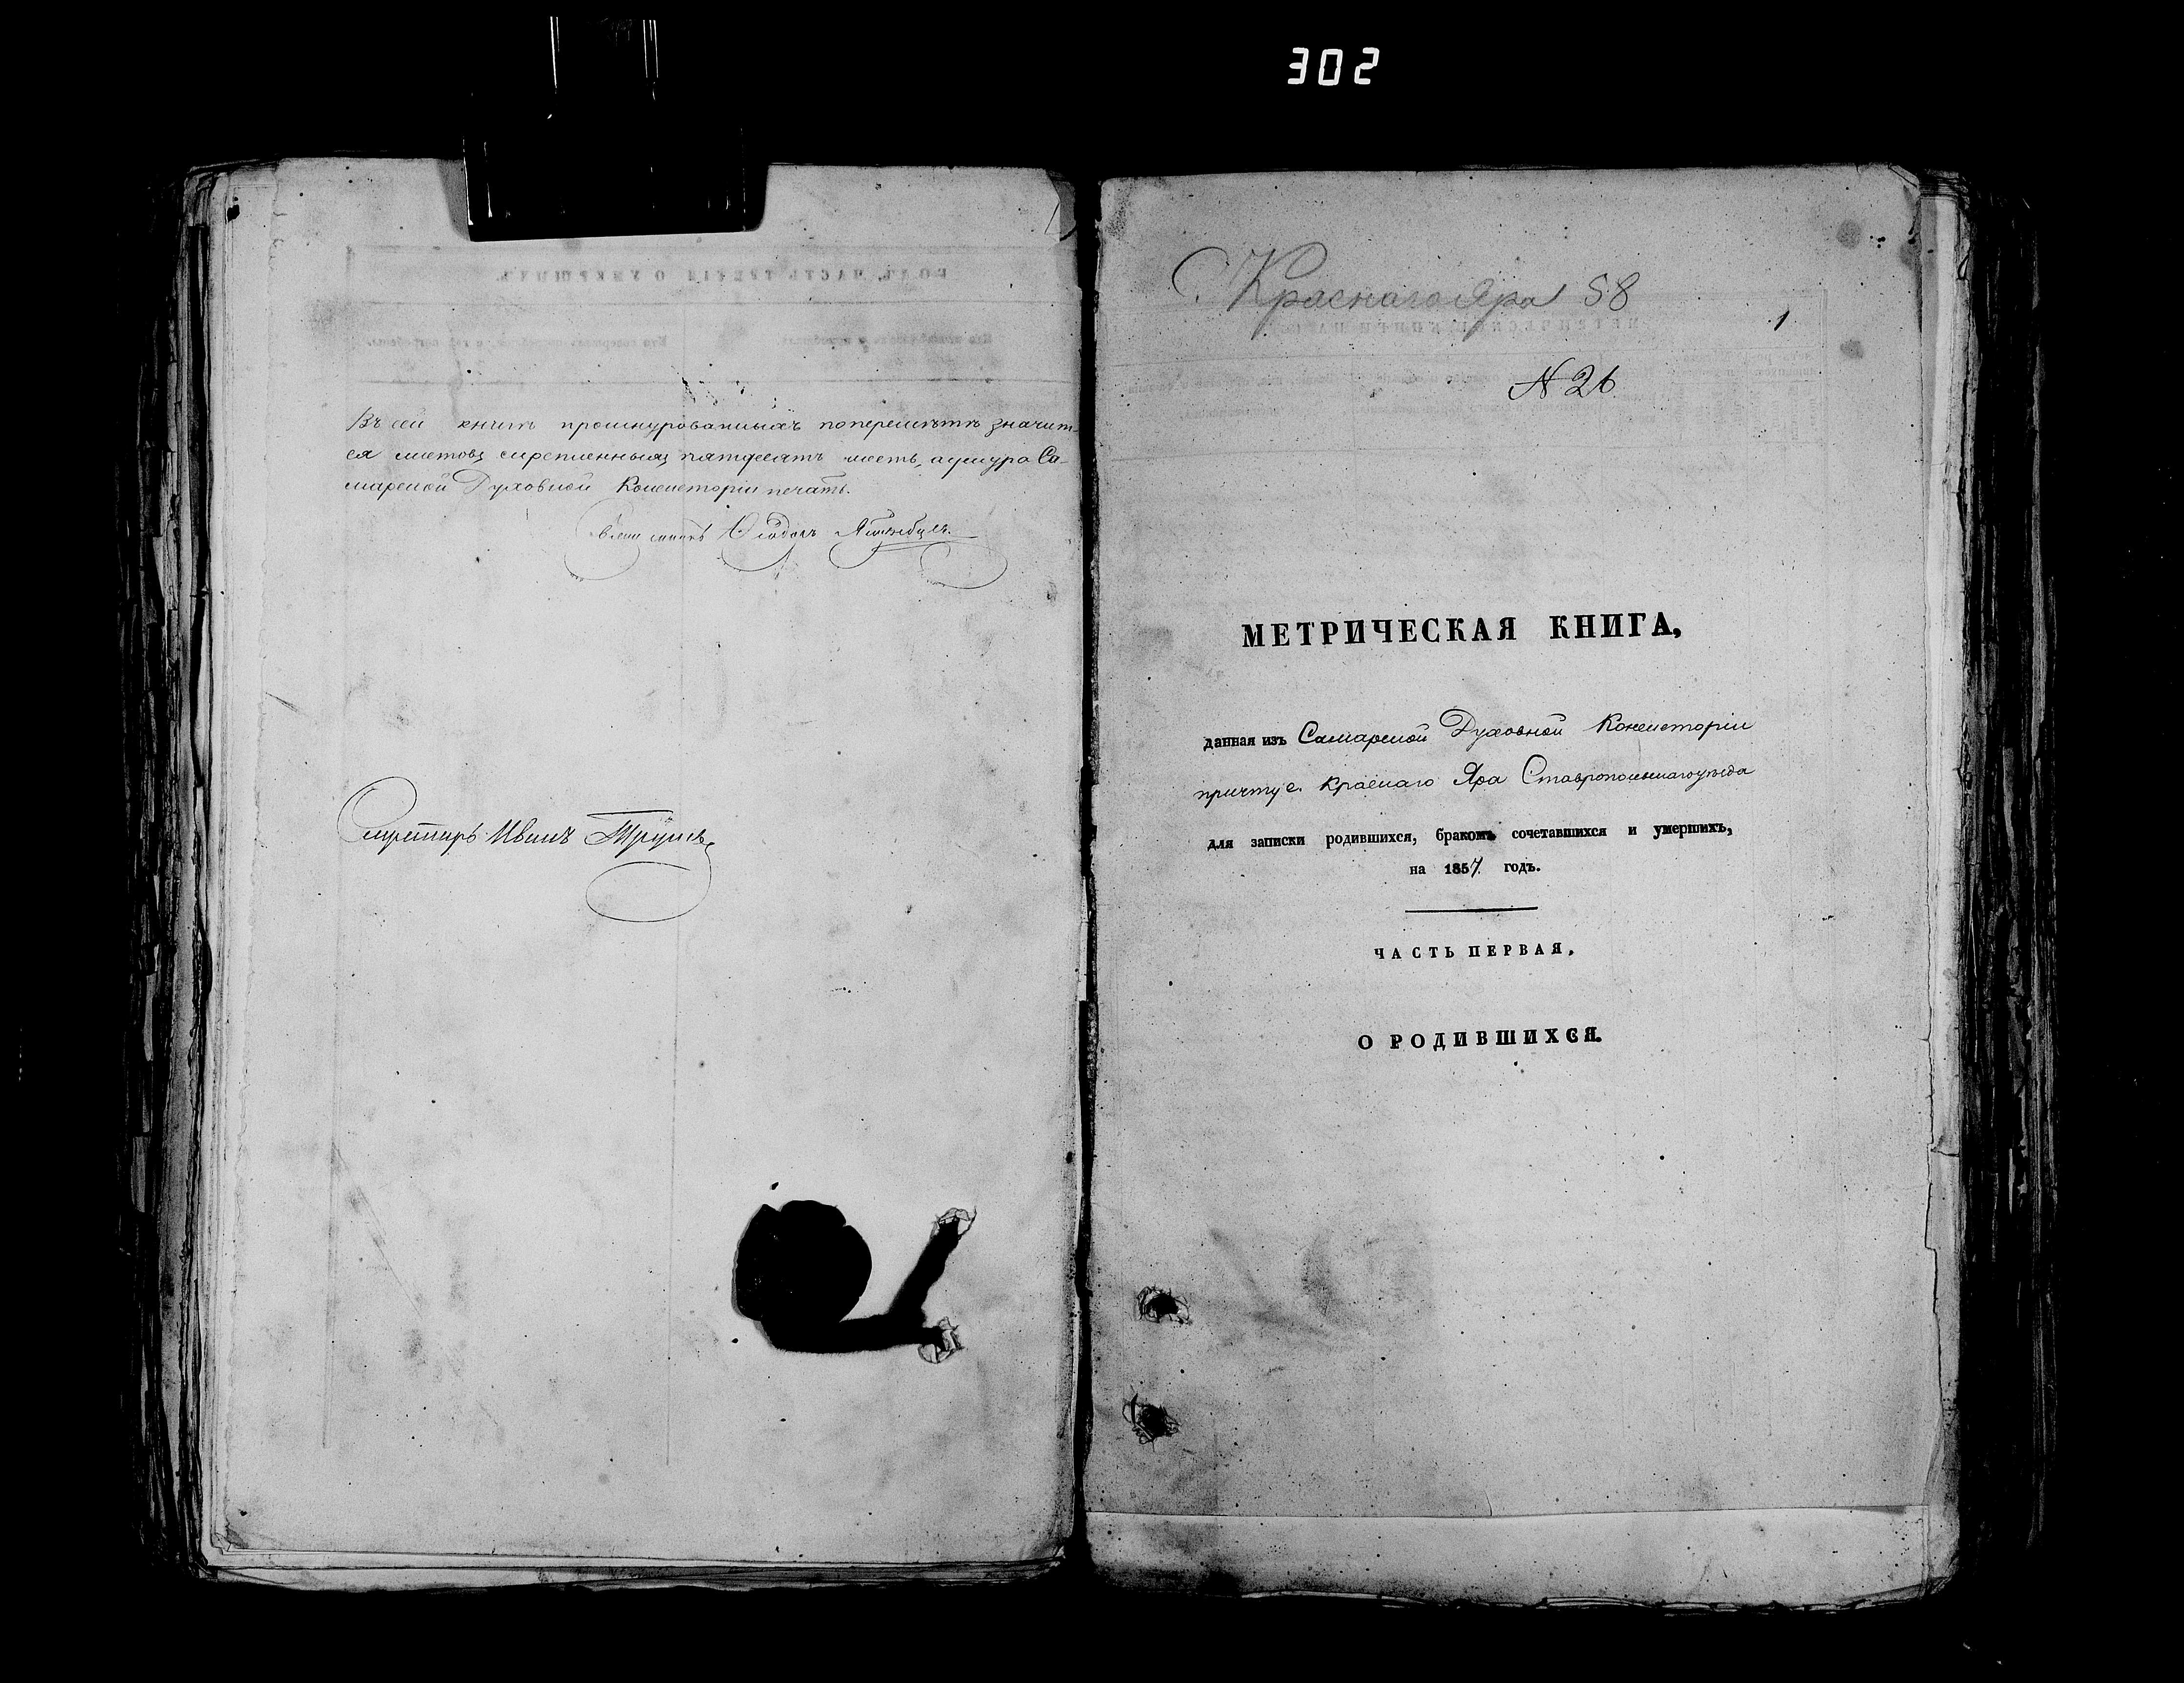 302
Въ сей книгѣ прошнурованныхъ и перемѣченныхъ значит-
ся листовъ скрепленныхъ пятдесятъ шесть, а у шнура Са-
марской Духовной Консисторіи печать.
Священникъ
Секретарь Иванъ
С. Краснаго Яра 58
1
N 26
МЕТРИЧЕСКАЯ КНИГА,
данная изъ Самарской Духовной Консисторіи
причту с. Краснаго Яра Ставропольскаго уѣзда
для записки родившихся, бракомъ сочетавшихся и умершихъ,
на 1857 годъ.
ЧАСТЬ ПЕРВАЯ,
О РОДИВШИХСЯ.